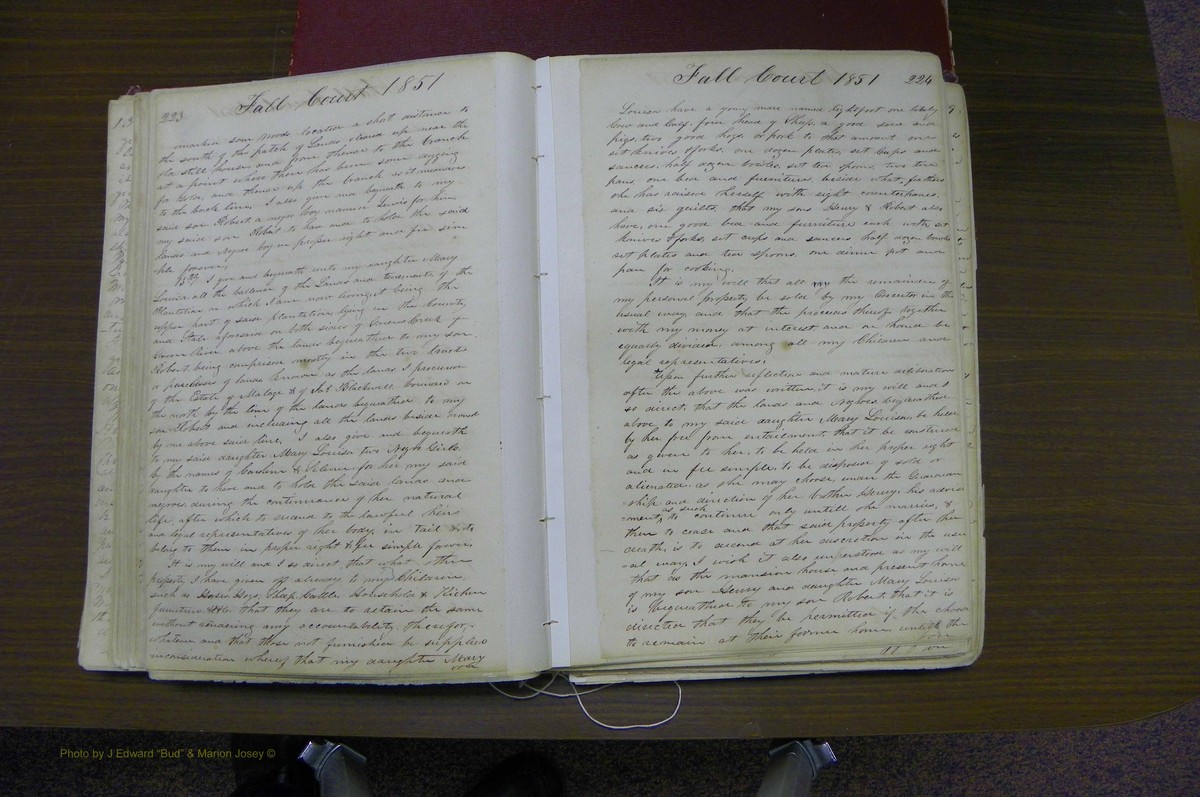 Fall Court 1851
223
the south of the patch of Lands cleared up near the
old still house, and from thence to the branch
at a point where there has been some digging
for Gold, and thence up the branch as it meanders
to the back line, I also give and bequeath to my
said son Robert a negro boy named Lewis for him
my said son Robert to have and to hold the said
lands and Negro boy in proper right and fee sim
ple forever,
15th I give and bequeath unto my daughter Mary
Louisa all the ballance of the Lands and tenements of the
Plantation on which I am now living it being the
upper part of said plantation lying in the County
and State aforesaid on both sides of Creek &
River above the lands bequeathed to my son
Robert, being comprised mostly in the two tracts
or purchases of lands known as the lands I procured
of the Estate of & of Blackwell bounded on
the north by the line of the lands bequeathed to my
son Robert and including all the lands beside owned
by me above said line, I also give and bequeath
to my said daughter Mary Louisa two Negro Girls,
by the names of Caroline & for her my said
daughter to have and to hold the said lands and
negroes during the continuance of her natural
life, after which to descend to the lawful heirs
and legal representatives of her body, in tail & to
belong to them in proper right & fee simple forever
It is my will and I so direct that what other
property I have given off already to my Children,
such as Horses, Hogs, Sheep, Cattle, Household & Kitchen
furniture &c that they are to retain the same
without rendering any accountability therefor,
whatever and that those not furnished be supplied
in consideration whereof that my daughter Mary
Fall Court 1851
224
Louisa have a young mare named one likely
Cow and Calf, four head of Sheep, a good sow and
pigs, two good hogs or pork to that amount one
set knives & forks, one dozen plates, set Cups and
saucers, half dozen bowls, set tea spoons, two tin
pans, one bed and furniture, beside what feathers
she has raised herself with eight counterpanes,
and six quilts, that my sons Henry & Robert also
have, one good bed and furniture each with set
knives & forks, set cups and saucers half dozen bowls
set plates and tea spoons, one dinner pot and
pan for cooking.
It is my will that all the remainder of
my personal property be sold by my Executor in the
usual way and that the proceeds thereof together
with my money at interest and on hand be
equally divided among all my Children and
legal representatives.
Upon further reflection and mature deliberation
after the above was written, it is my will and I
so direct, that the lands and Negroes bequeathed
above to my said daughter Mary Louisa, be held
by her free from entailment, that it be construed
as given to her, to be held in her proper right
and in fee simple, to be disposed of sold or
alienated as she may choose, under the Guardian
-ship and direction of her brother Henry, his advise
-ment, as such to continue only untill she marries, &
then to cease and that said property after her
death, is to descend at her discretion in the usu
-al way, I wish it also understood as my will
that as the mansion house and present home
of my son Henry and daughter Mary Louisa
is bequeathed to my son Robert, that it is
directed that they be permitted if they choose
to remain at their former home untill the
Photo by J Edward "Bud" & Marion Josey ©